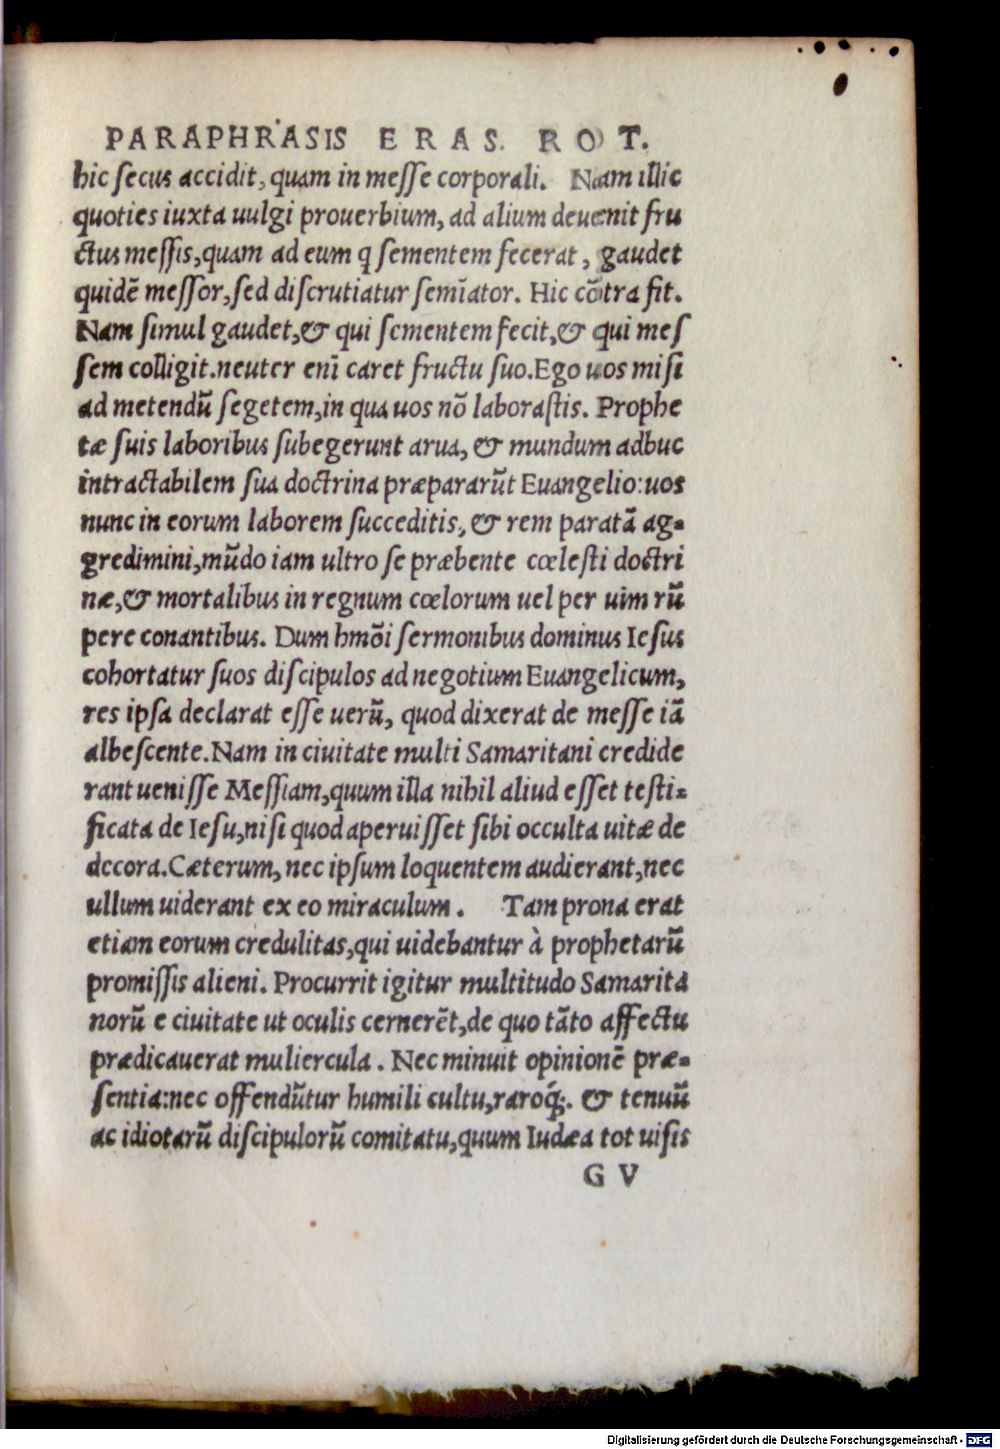 PARAPHRASIS ERAS. ROT.
hic secus accidit, quam in messe corporali. Nam illic
quoties iuxta uulgi prouerbium, ad alium deuenit fru
ctus messis, quam ad eum q sementem fecerat, gaudet
quidẽ messor, sed discrutiatur semĩator. Hic cõtra fit.
Nam simul gaudet, & qui sementem fecit, & qui mes
sem colligit. neuter enĩ caret fructu suo. Ego uos misi
ad metendũ segetem, in qua uos nõ laborastis. Prophe
tæ suis laboribus subegerunt arua, & mundum adhuc
intractabilem sua doctrina præpararũt Euangelio: uos
nunc in eorum laborem succeditis, & rem paratã ag-
gredimini, mũdo iam ultro se præbente cœlesti doctri
næ, & mortalibus in regnum cœlorum uel per uim rũ
pere conantibus. Dum hmõi sermonibus dominus Iesus
cohortatur suos discipulos ad negotium Euangelicum,
res ipsa declarat esse uerũ, quod dixerat de messe iã
albescente. Nam in ciuitate multi Samaritani credide
rant uenisse Messiam, quum illa nihil aliud esset testi-
ficata de Iesu, nisi quod aperuisset sibi occulta uitæ de
decora. Cæterum, nec ipsum loquentem audierant, nec
ullum uiderant ex eo miraculum. Tam prona erat
etiam eorum credulitas, qui uidebantur à prophetarũ
promissis alieni. Procurrit igitur multitudo Samarita
norũ e ciuitate ut oculis cernerẽt, de quo tãto affectu
prædicauerat muliercula. Nec minuit opinionẽ præ-
sentia: nec offendũtur humili cultu, raroq́;. & tenuũ
ac idiotarũ discipulorũ comitatu, quum Iudæa tot uisis
G V
Digitalisierung gefördert durch die Deutsche Forschungsgemeinschaft - DFG